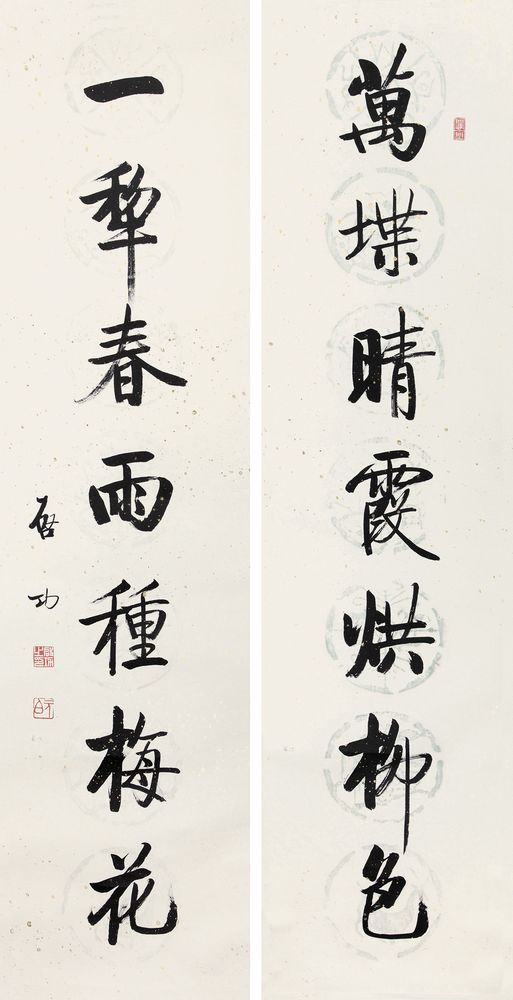 萬堞晴霞烘柳色
一犂春雨種梅花
啓功